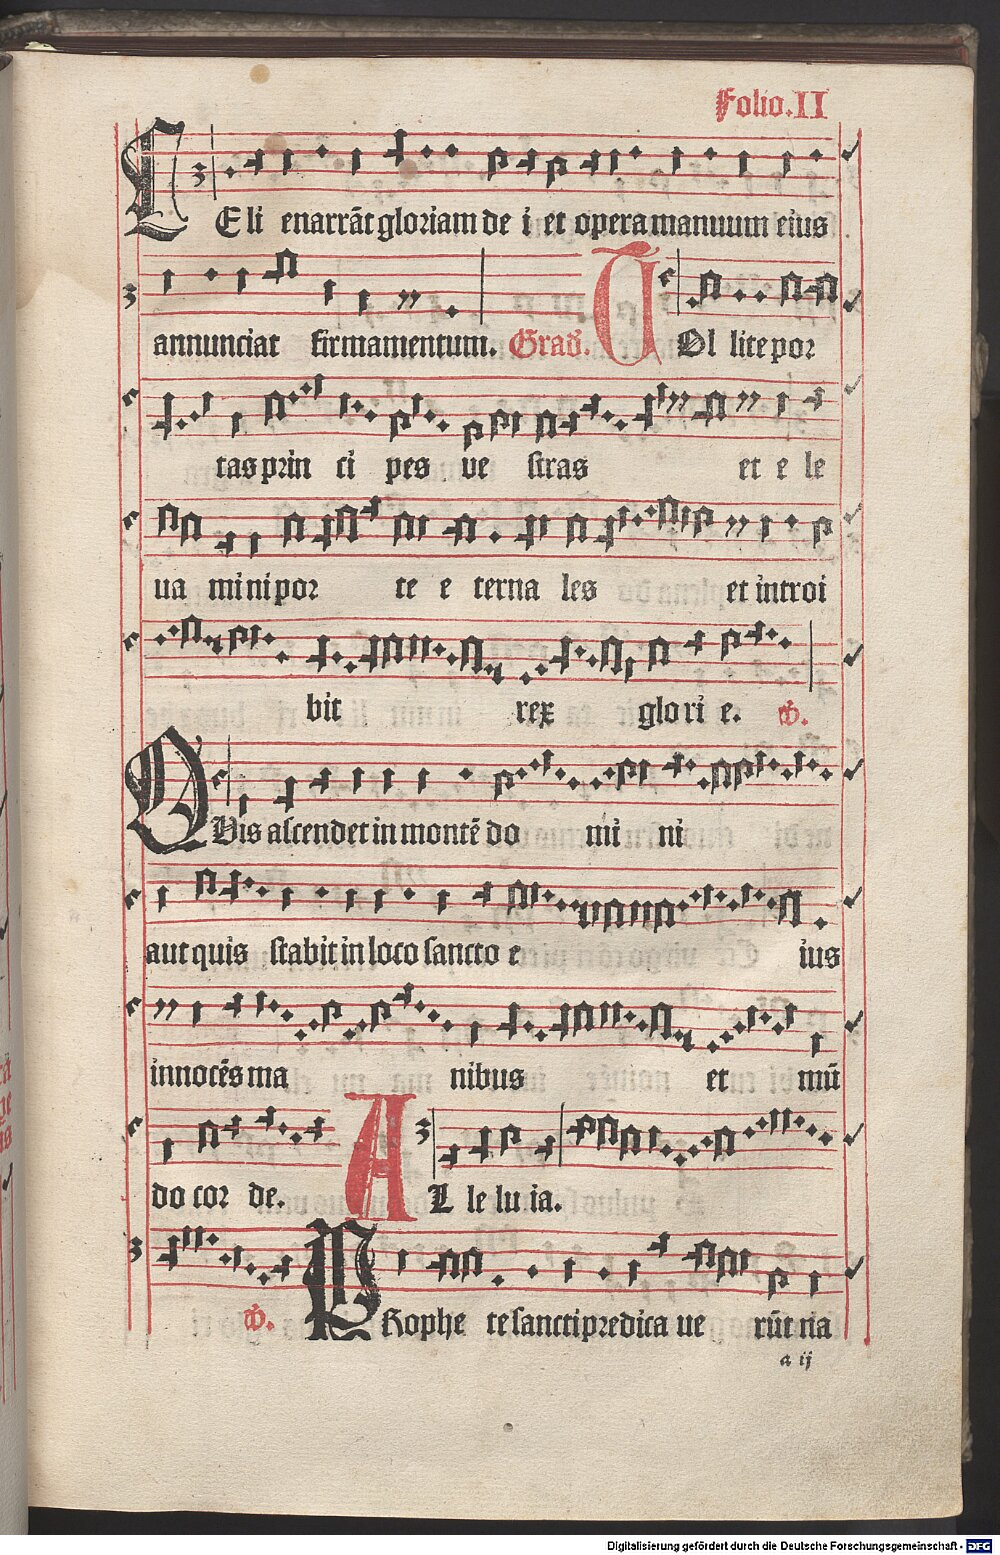 Folio.II
CEli enarrāt gloriam de i et opera manuum eius
annunciat firmamentum. Grad̄. TOl lite por
tas prin ci pes ve stras et e le
ua mini por te e terna les et introi
bit rex glo ri e. ℣.
QUis ascendet in montē do mi ni
aut quis stabit in loco sancto e ius
innocēs ma nibus et mū
do cor de. AL le lu ia.
℣. PRophe te sancti predica ue rūt na
a ij
Digitalisierung gefördert durch die Deutsche Forschungsgemeinschaft - DFG